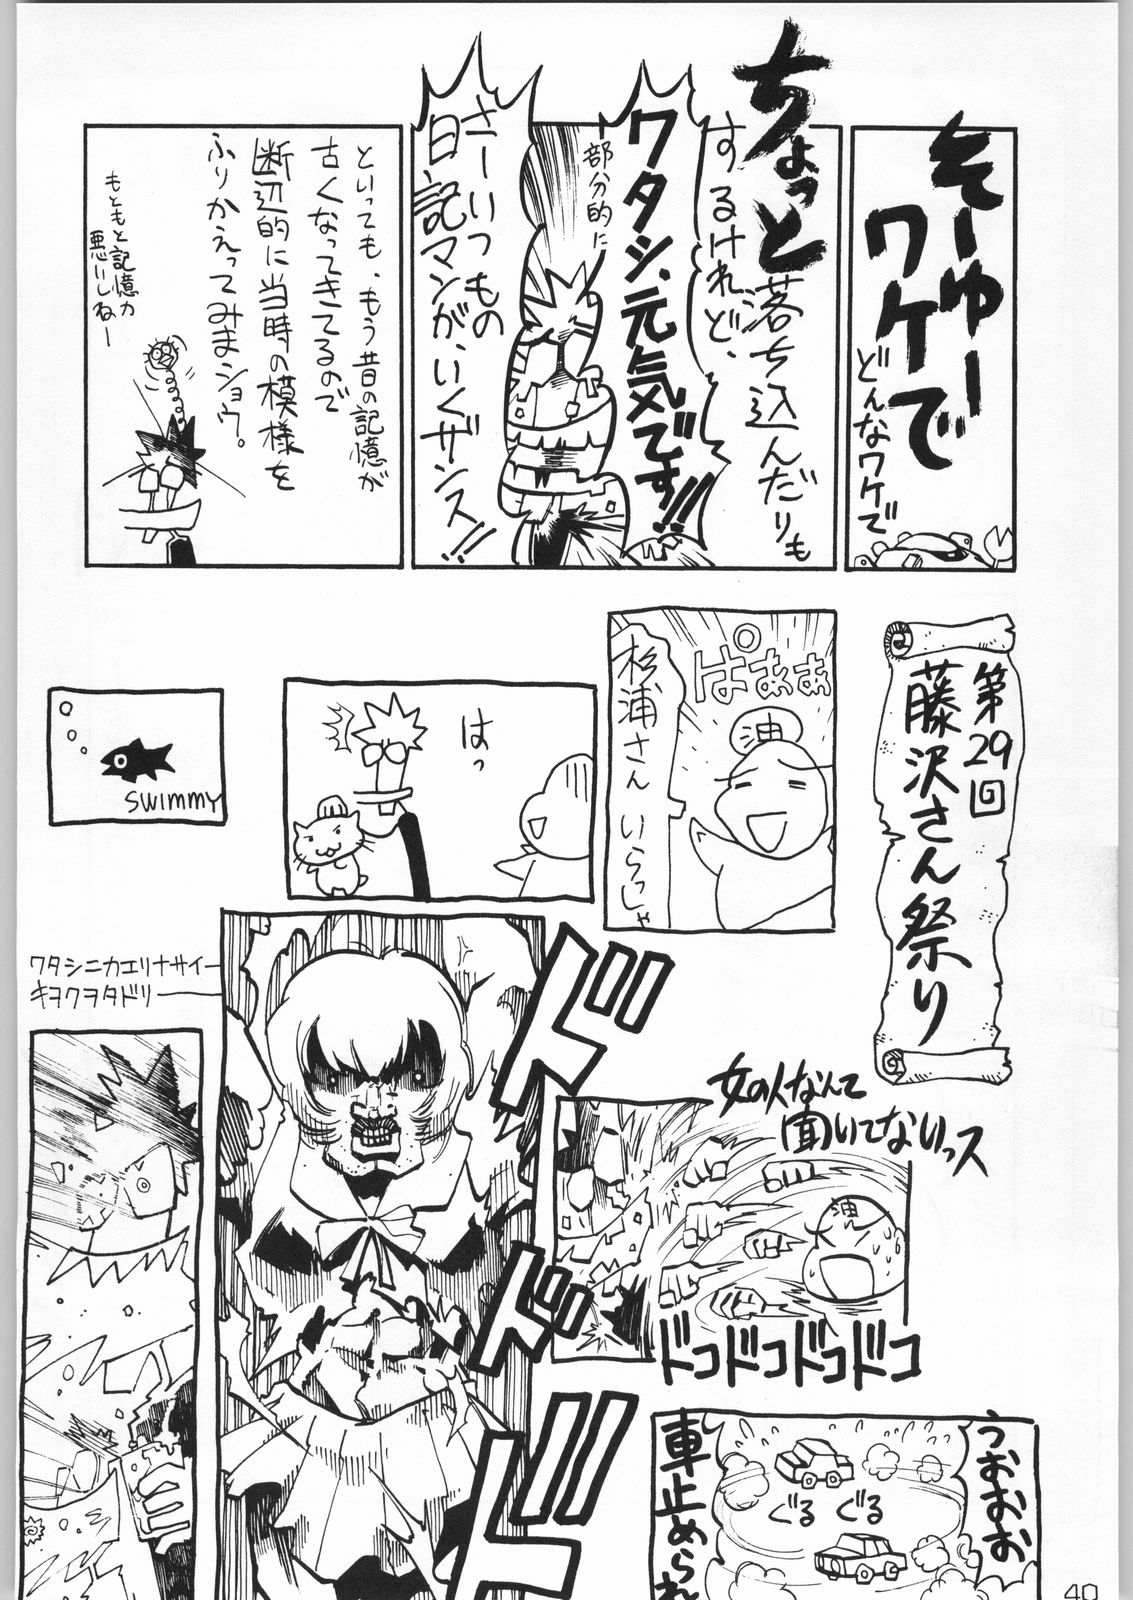 そーゆー
ワケで
どんなワケで
ちょっと落ち込んだりも
するけれど、
ワタシ、元気です!!
部分的に
さーいつもの
日記マンガ、いくザンス!!
といっても、もう昔の記憶が
古くなってきてるので
断辺的に当時の模様を
ふりかえってみまショウ。
もともと記憶力
悪いしねー
第29回
藤沢さん祭り
ぱあぁぁ
油
杉浦さん いらっしゃ
はっ
SWIMMY
ワタシニカエリナサイー
キヲクヲタドリ――
ドドド
女の人なんて
聞いてないっス
油
ドコドコドコドコ
うおおお
ぐる ぐる
車止められ
40